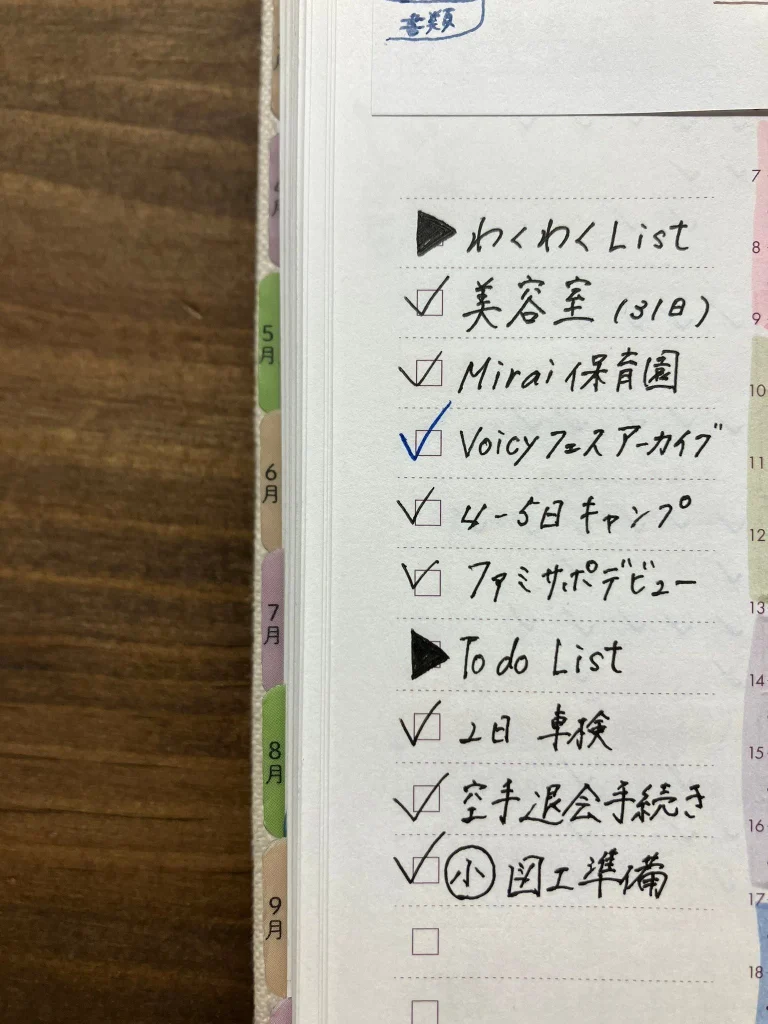 書類
▶わくわくList
美容室(31日)
Mirai保育園
Voicyフェスアーカイブ
4-5日キャンプ
ファミサポデビュー
▶To do List
2日 車検
空手退会手続き
小 図工準備
5月
6月
7月
8月
9月
7
8
9
10
11
12
13
14
15
16
17
18